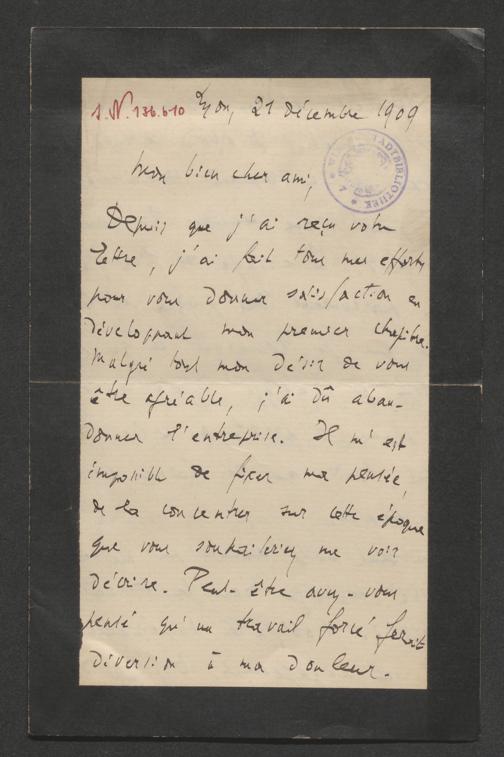 I.N. 136.610
Lyon, 21 Décembre 1909
STADTBIBLIOTHEK
Mon bien cher ami,
Depuis que j'ai reçu votre
lettre, j'ai fait tous mes efforts
pour vous donner satisfaction en
développant mon premier chapitre.
Malgré tout mon désir de vous
être agréable, j'ai dû aban-
donner l'entreprise. Il m'est
impossible de fixer ma pensée,
de la concentrer sur cette époque
que vous souhaiteriez me voir
décrire. Peut-être avez-vous
pensé qu'un travail forcé ferait
diversion à ma douleur.